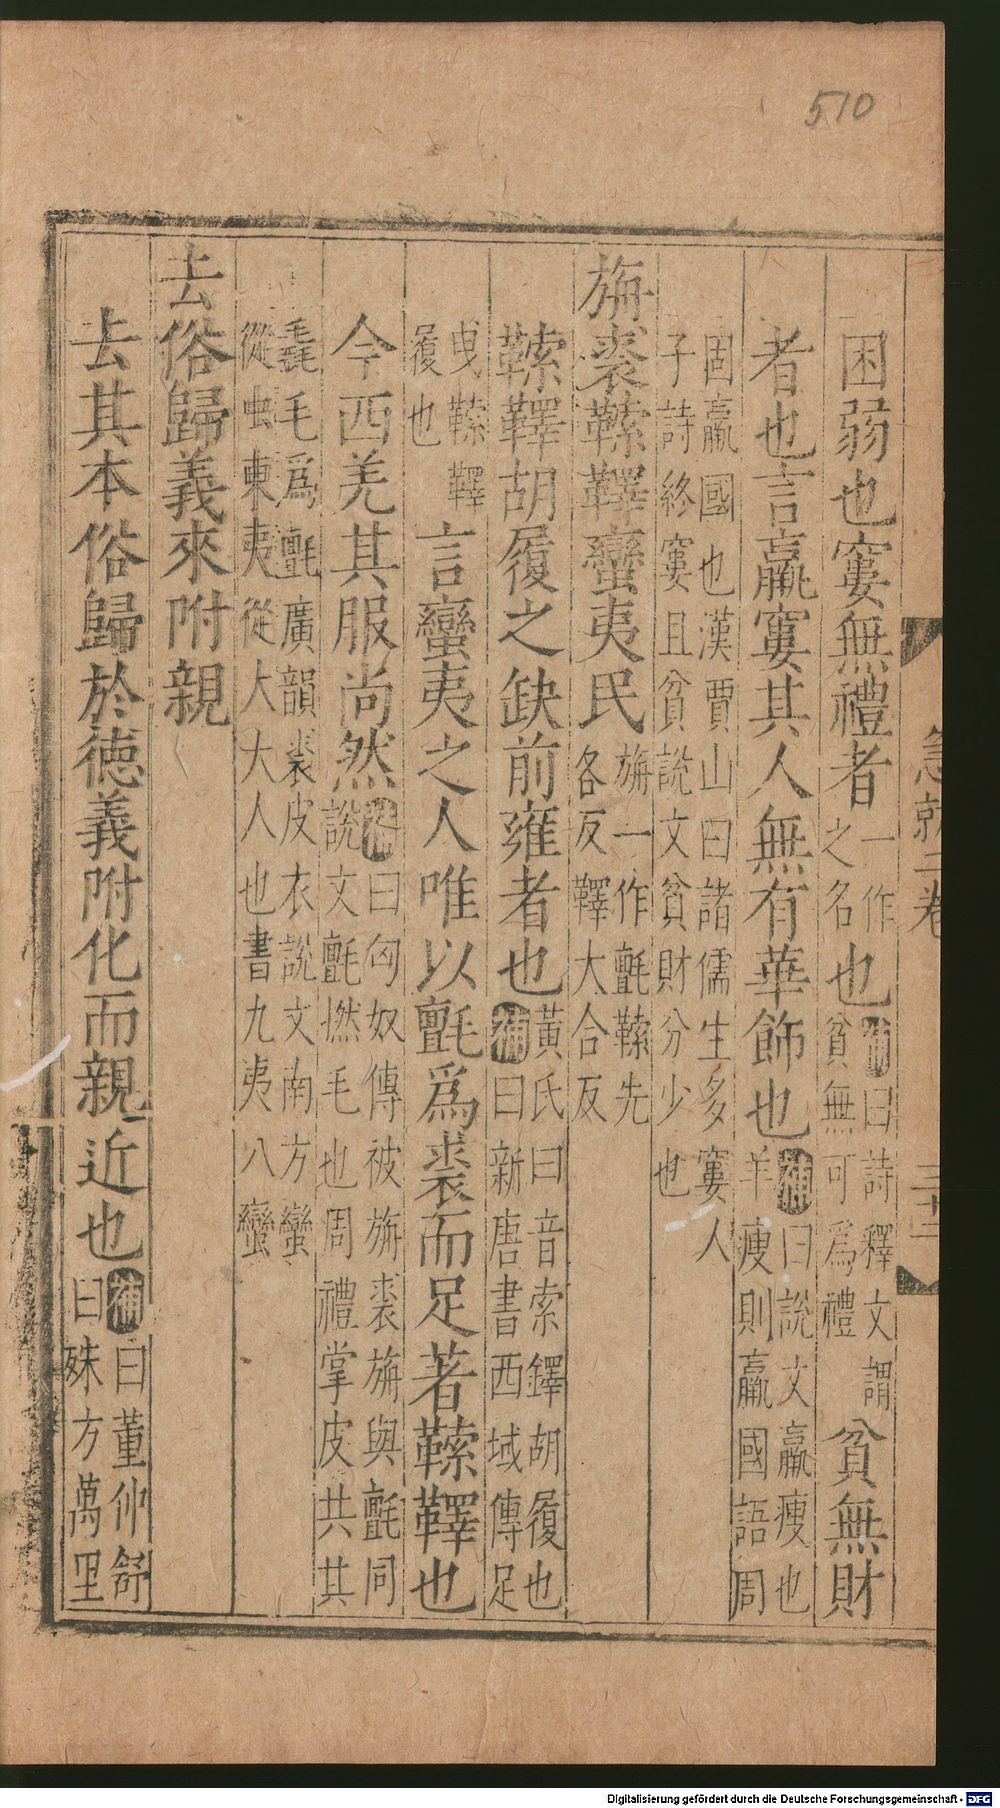 510
急就二卷
三十二
困弱也窶無禮者一作之名也補曰詩釋文謂貧無可爲禮貧無財
者也言羸窶其人無有華飾也補曰說文羸瘦也羊瘦則羸國語周
固羸國也漢賈山曰諸儒生多窶人子詩終窶且貧說文貧財分少也
旃裘䩡鞸蠻夷民旃一作氈䩡先各反鞸大合反
䩡鞸胡履之缺前雍者也黃氏曰音索鐸胡履也補曰新唐書西域傳足
曳䩡鞸履也言蠻夷之人唯以氈爲裘而足著䩡鞸也
今西羌其服尚然補曰匈奴傳被旃裘旃與氈同說文氈撚毛也周禮掌皮共其
毳毛爲氈廣韻裘皮衣說文南方蠻從虫東夷從大大人也書九夷八蠻
去俗歸義來附親
去其本俗歸於德義附化而親近也補曰董仲舒曰殊方萬里
Digitalisierung gefördert durch die Deutsche Forschungsgemeinschaft - DFG